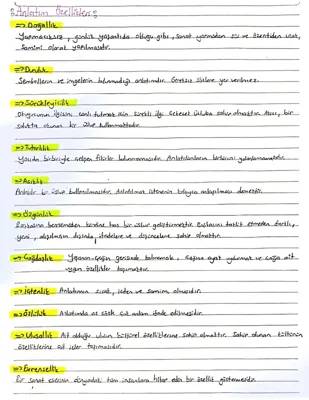 Anlatım Özellikleri
=> Doğallık
Yapmacıksız, günlük yaşantıda olduğu gibi, sanat yapmadan süs ve özentiden uzak,
samimi olarak yazılmasıdır.
=> Duruluk
Sembollerin ve imgelerin bulunmadığı anlatımdır. Gereksiz sözlere yer verilmez.
=> Sürükleyicilik
Okuyucunun ilgisini canlı tutmak için sürekli ilgi çekecek üsluba sahip olmaktır. Akıcı, bir
solukta okunan bir
=> Tutarlılık
Yazıda birbiriyle çelişen fikirler bulunmamasıdır. Anlatılanların birbirini yalanlamamasıdır.
=> Açıklık
Anlaşılır bir kullanılmasıdır. anlatılmak istenenin kolayca anlaşılması demektir.
=> Özgünlük
benzemeden kendine has bir üslup geliştirmektir. taklit etmeden farklı,
yeni, alışılmışın dışında, ifadelere ve düşüncelere sahip olmaktır.
=> Çağdaşlık Yaşanan çağın gerisinde kalmamak, çağına ayak uydurmak ve çağa ait
özellikler taşımaktır.
=> İçtenlik Anlatımın sıcak, içten ve samimi olmasıdır.
=> Özlülük Anlatımda az sözle çok anlam ifade edilmesidir.
=> Ulusallık Ait olduğu ulusun kültürel özelliklerine sahip olmaktır. Sahip olunan kültürün
özelliklerine ait izler taşımasıdır.
=> Evrensellik
Bir sanat eserinin dünyadaki tüm insanlara hitap eden bir özellik göstermesidir.